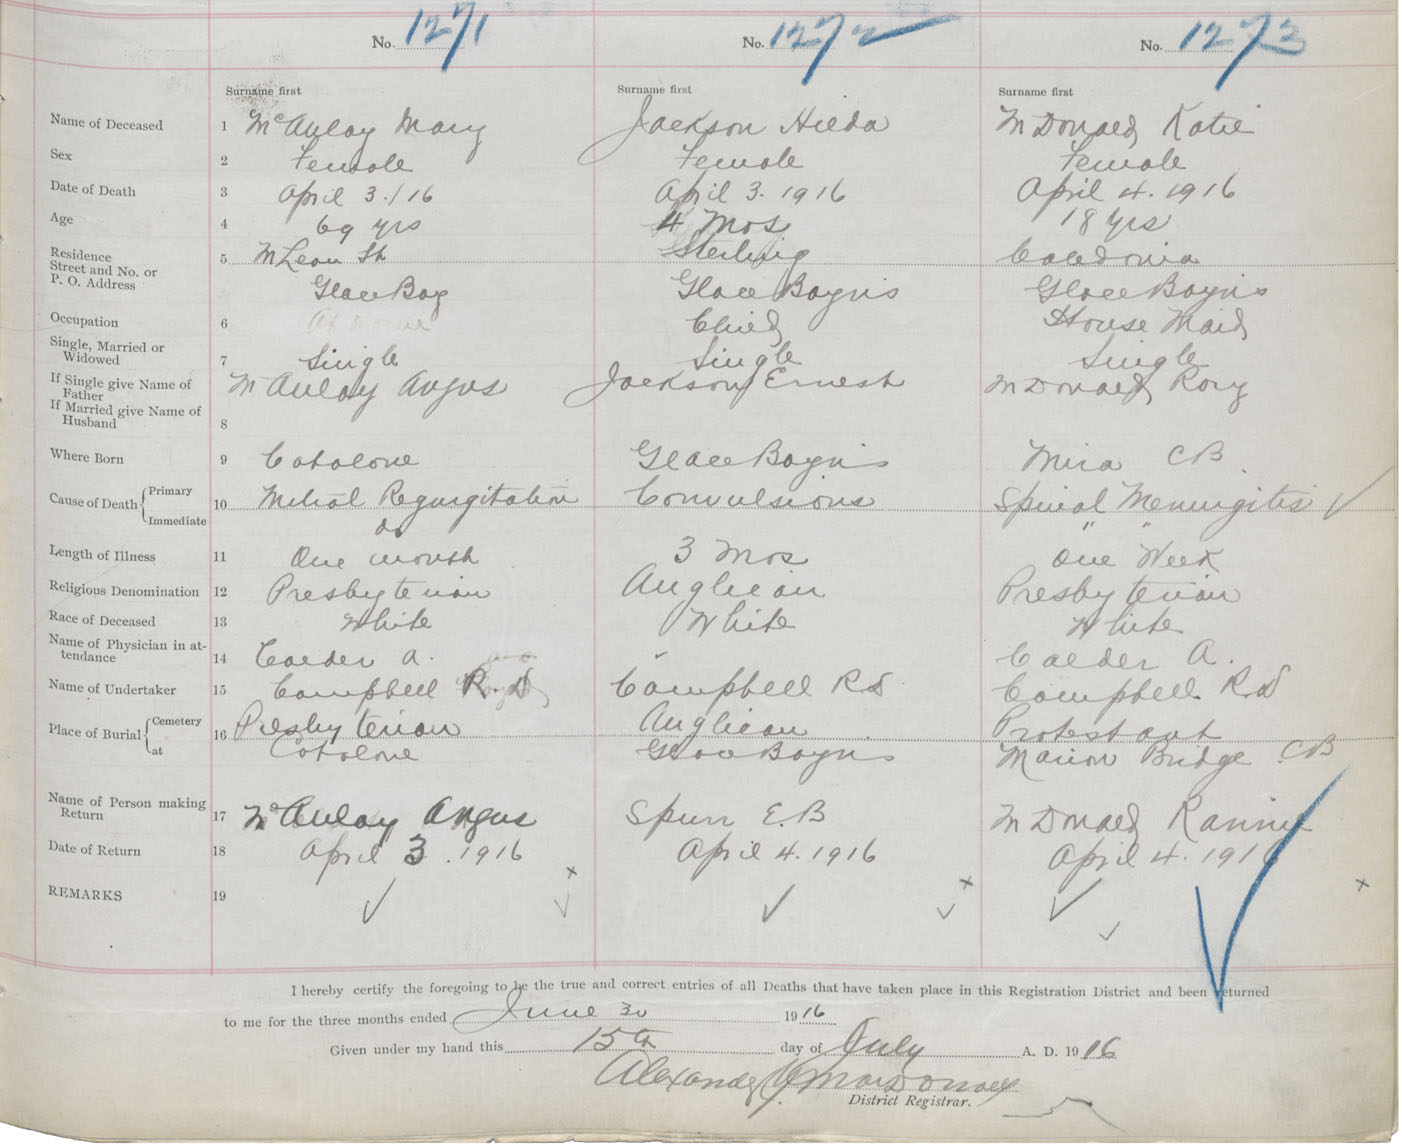 No. 1271 No. 1272 No. 1273
Surname first Surname first Surname first
Name of Deceased 1 McAulay Mary Jackson Hilda McDonald Katie
Sex 2 Female Female Female
Date of Death 3 April 3./16 April 3. 1916 April 4. 1916
Age 4 69 yrs 4 Mos 18 yrs
Residence
Street and No. or 5 McLean St Sterling Caledonia
P. O. Address Glace Bay Glace Bay NS Glace Bay NS
Occupation 6 Child House Maid
Single, Married or
Widowed 7 Single Single Single
If Single give Name of
Father McAulay Angus Jackson Ernest McDonald Rory
If Married give Name of
Husband 8
Where Born 9 Catalone Glace Bay NS Mira CB
Cause of Death { Primary 10 Mitral Regurgitation Convulsions Spinal Meningitis
Immediate do " "
Length of Illness 11 One month 3 Mos One Week
Religious Denomination 12 Presbyterian Anglican Presbyterian
Race of Deceased 13 White White White
Name of Physician in at-
tendance 14 Calder A. - Calder A.
Name of Undertaker 15 Campbell R. D Campbell R D Campbell R D
Place of Burial { Cemetery 16 Presbyterian Anglican Protestant
at Catalone Glace Bay NS Marion Bridge CB
Name of Person making
Return 17 McAulay Angus Spurr E. B McDonald Rannie
Date of Return 18 April 3. 1916 April 4. 1916 April 4. 1916
REMARKS 19
I hereby certify the foregoing to be the true and correct entries of all Deaths that have taken place in this Registration District and been returned
to me for the three months ended June 30 1916
Given under my hand this 15th day of July A. D. 1916
Alexander MacDonald
District Registrar.